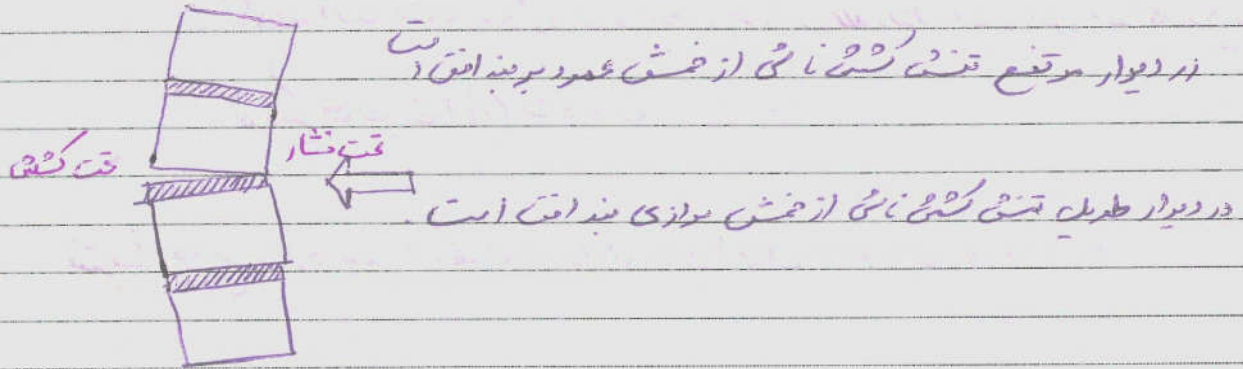 در دیوار مرتفع تنش کششی ناشی از خمش عمود بر بند افقی است
تحت فشار
تحت کشش
در دیوار طویل تنش کششی ناشی از خمش موازی بند افقی است.